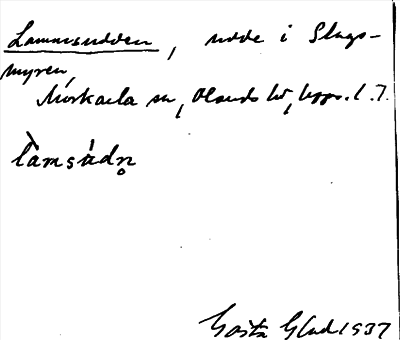 Lammsudden, udde i Slags-
myren,
Morkarla sn, Olands hd, Upps. l. 7.
làmsúdn̥
Gösta Glad 1937